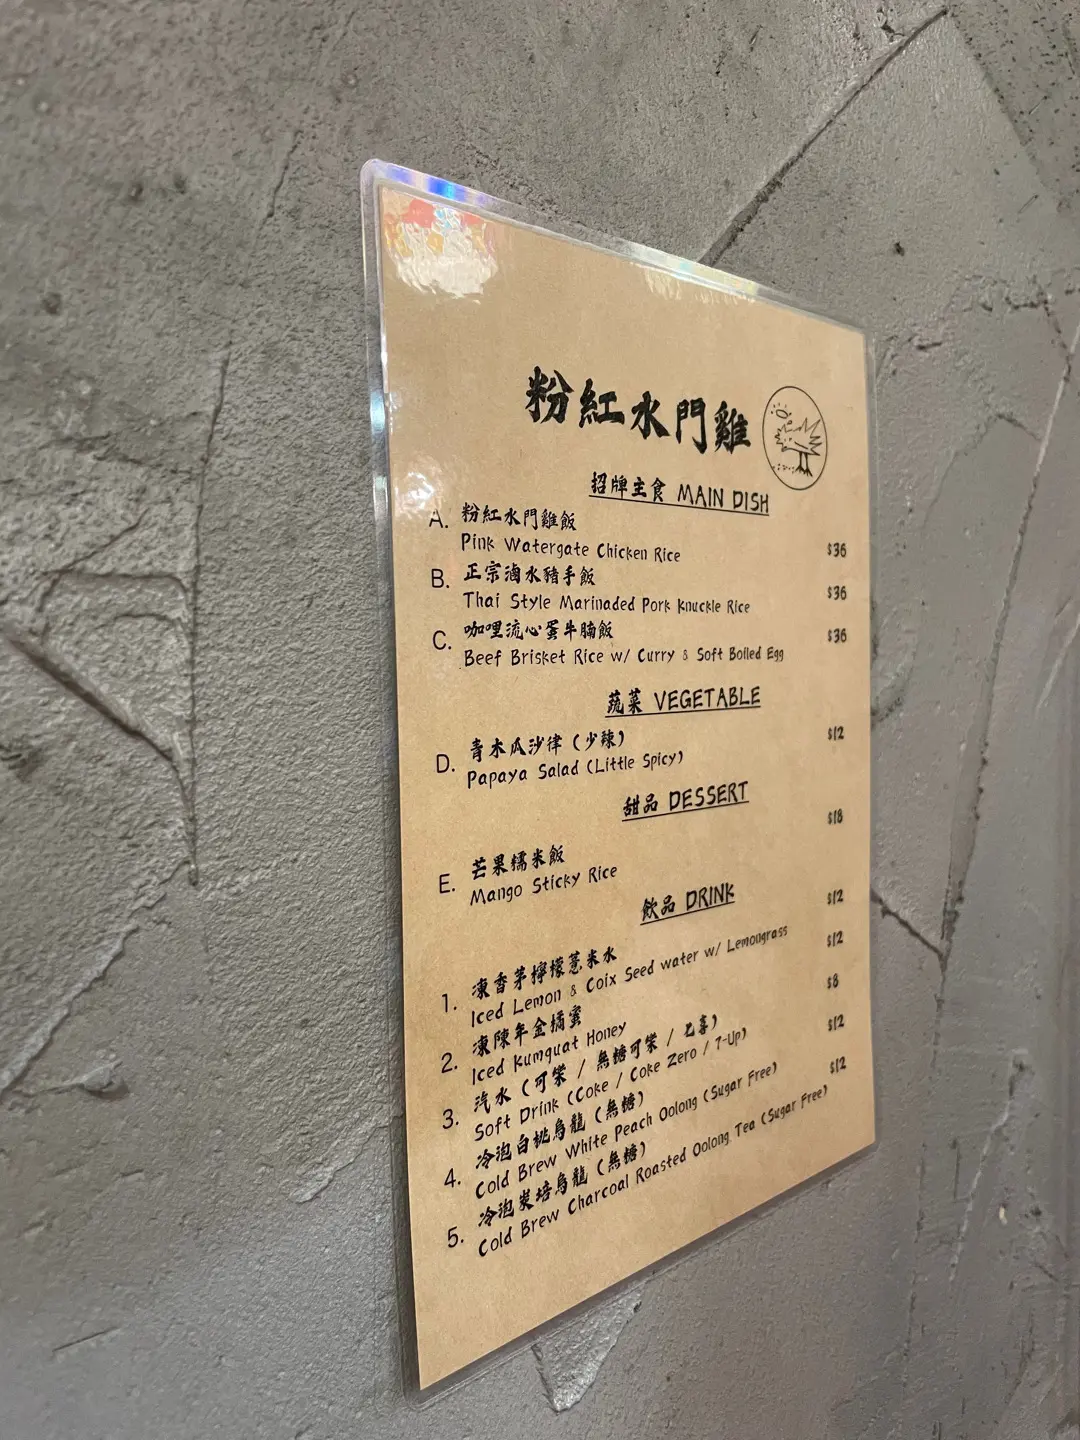 粉紅水門雞
招牌主食 MAIN DISH
A. 粉紅水門雞飯
Pink Watergate Chicken Rice $36
B. 正宗滷水豬手飯
Thai Style Marinaded Pork Knuckle Rice $36
C. 咖哩流心蛋牛腩飯
Beef Brisket Rice w/ Curry & Soft Boiled Egg $36
蔬菜 VEGETABLE
D. 青木瓜沙律 (少辣)
Papaya Salad (Little Spicy) $12
甜品 DESSERT
E. 芒果糯米飯
Mango Sticky Rice $18
飲品 DRINK
1. 凍香茅檸檬薏米水
Iced Lemon & Coix Seed water w/ Lemongrass $12
2. 凍陳年金橘蜜
Iced Kumquat Honey $12
3. 汽水 (可樂 / 無糖可樂 / 七喜)
Soft Drink (Coke / Coke Zero / 7-Up) $8
4. 冷泡白桃烏龍 (無糖)
Cold Brew White Peach Oolong (Sugar Free) $12
5. 冷泡炭培烏龍 (無糖)
Cold Brew Charcoal Roasted Oolong Tea (Sugar Free) $12